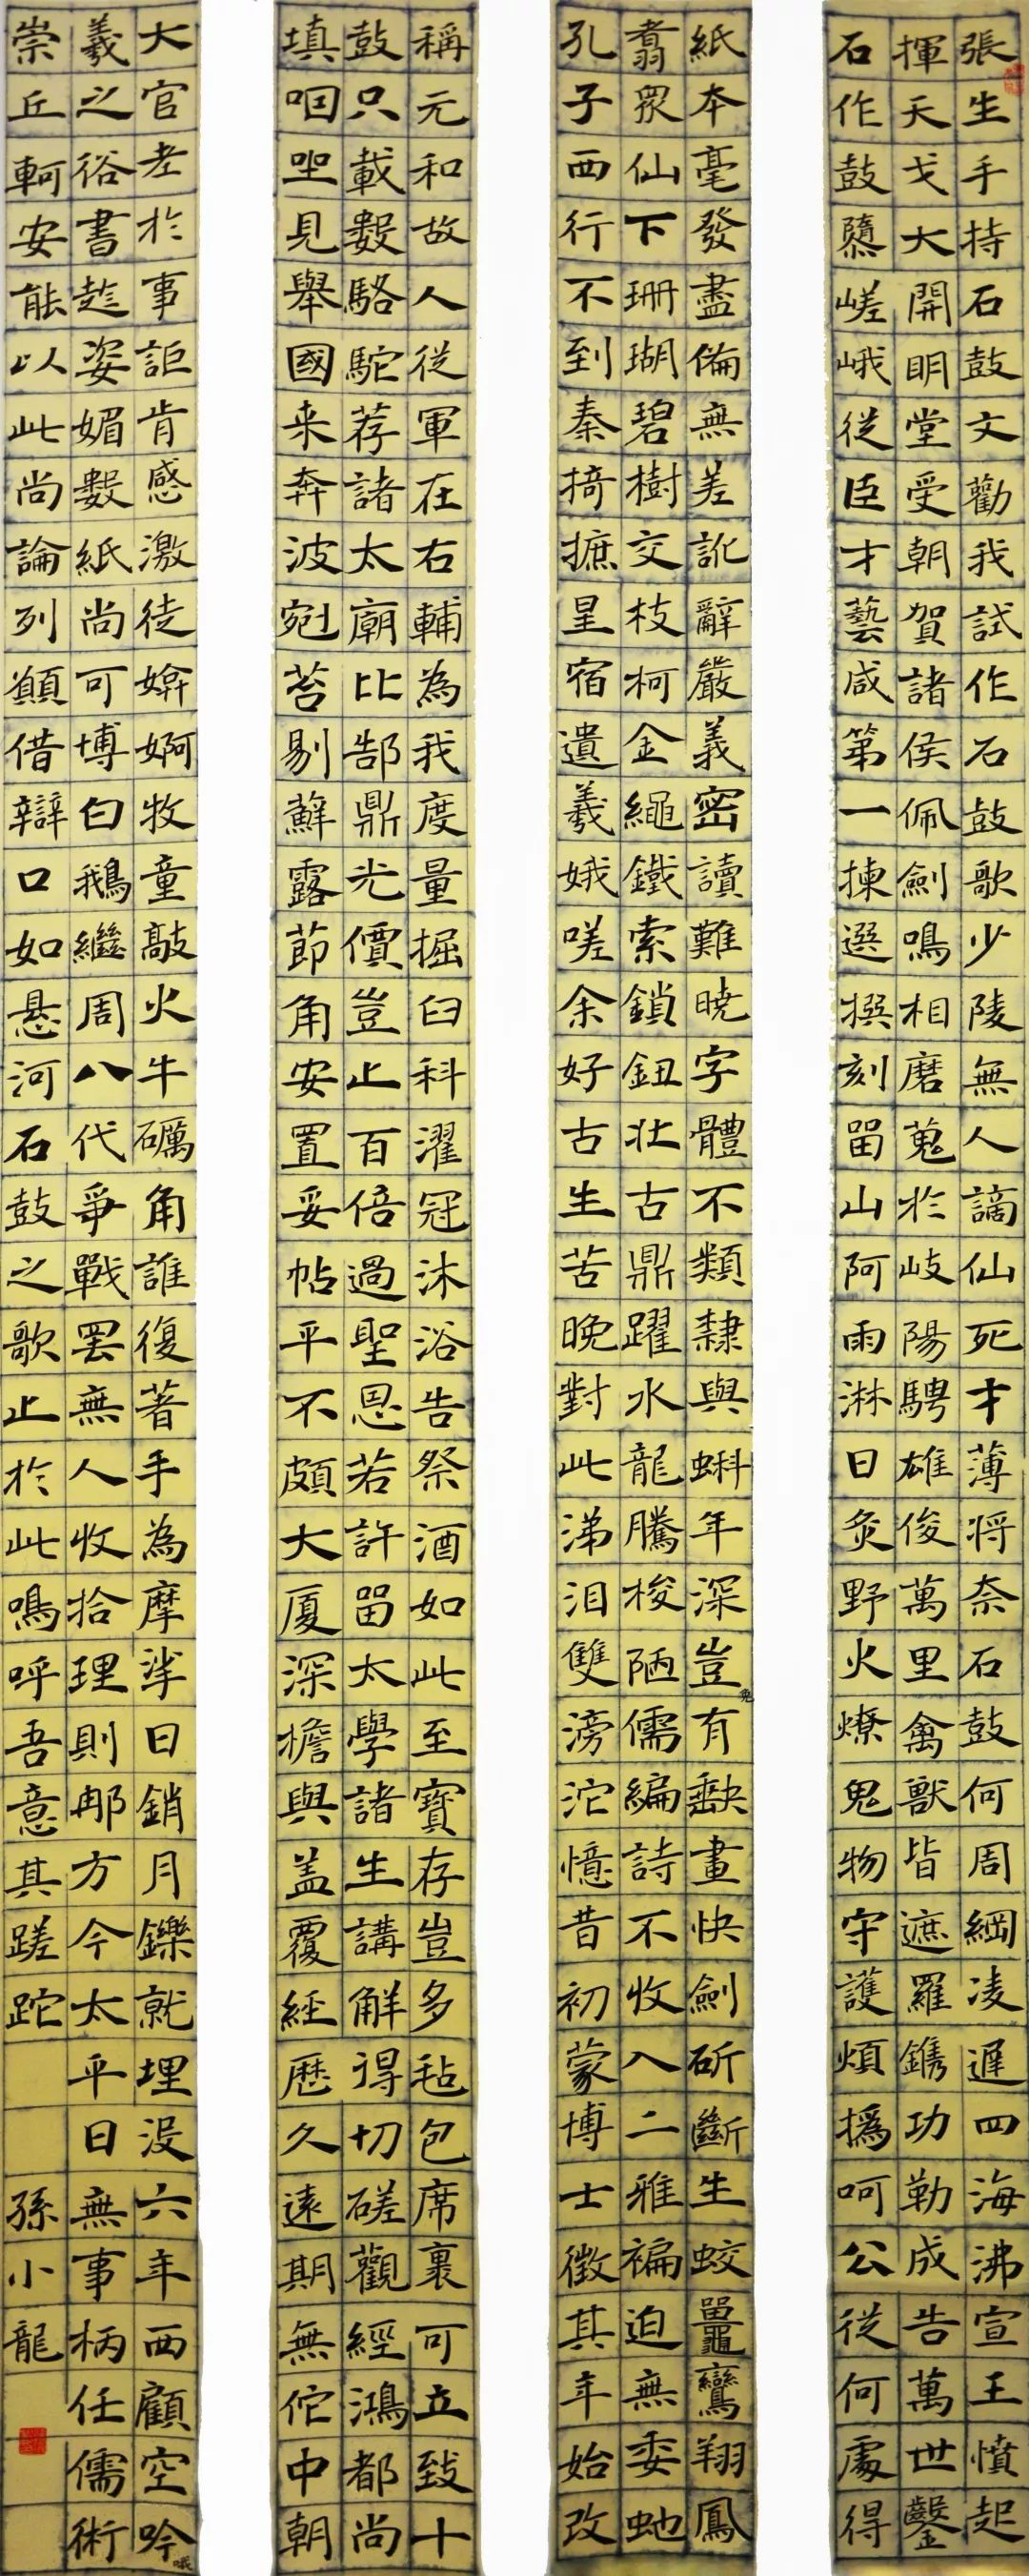 張生手持石鼓文勸我試作石鼓歌少陵無人謫仙死才薄将奈石鼓何周綱凌遲四海沸宣王憤起
揮天戈大開明堂受朝賀諸侯佩劍鳴相磨蒐於岐陽騁雄俊萬里禽獸皆遮羅鐫功勒成告萬世鑿
石作鼓隳嵯峨從臣才藝咸第一揀選撰刻留山阿雨淋日炙野火燎鬼物守護煩撝呵公從何處得
紙本毫發盡備無差訛辭嚴義密讀難曉字體不類隸與蝌年深豈免有缺畫快劍斫斷生蛟鼉鸞翔鳳
翥眾仙下珊瑚碧樹交枝柯金繩鐵索鎖鈕壯古鼎躍水龍騰梭陋儒編詩不收入二雅褊迫無委虵
孔子西行不到秦掎摭星宿遺羲娥嗟余好古生苦晚對此涕泪雙滂沱憶昔初蒙博士徵其年始改
稱元和故人從軍在右輔為我度量掘臼科濯冠沐浴告祭酒如此至寶存豈多毡包席裹可立致十
鼓只載數駱駝荐諸太廟比郜鼎光價豈止百倍過聖恩若許留太學諸生講解得切磋觀經鴻都尚
填咽坐見舉國来奔波剜苔剔蘚露節角安置妥帖平不頗大厦深檐與盖覆經歷久遠期無佗中朝
大官老於事詎肯感激徒媕婀牧童敲火牛礪角誰復著手為摩挲日銷月鑠就埋沒六年西顧空吟哦
羲之俗書趁姿媚數紙尚可博白鵝繼周八代爭戰罷無人收拾理則那方今太平日無事柄任儒術
崇丘軻安能以此尚論列願借辯口如懸河石鼓之歌止於此嗚呼吾意其蹉跎
孫小龍